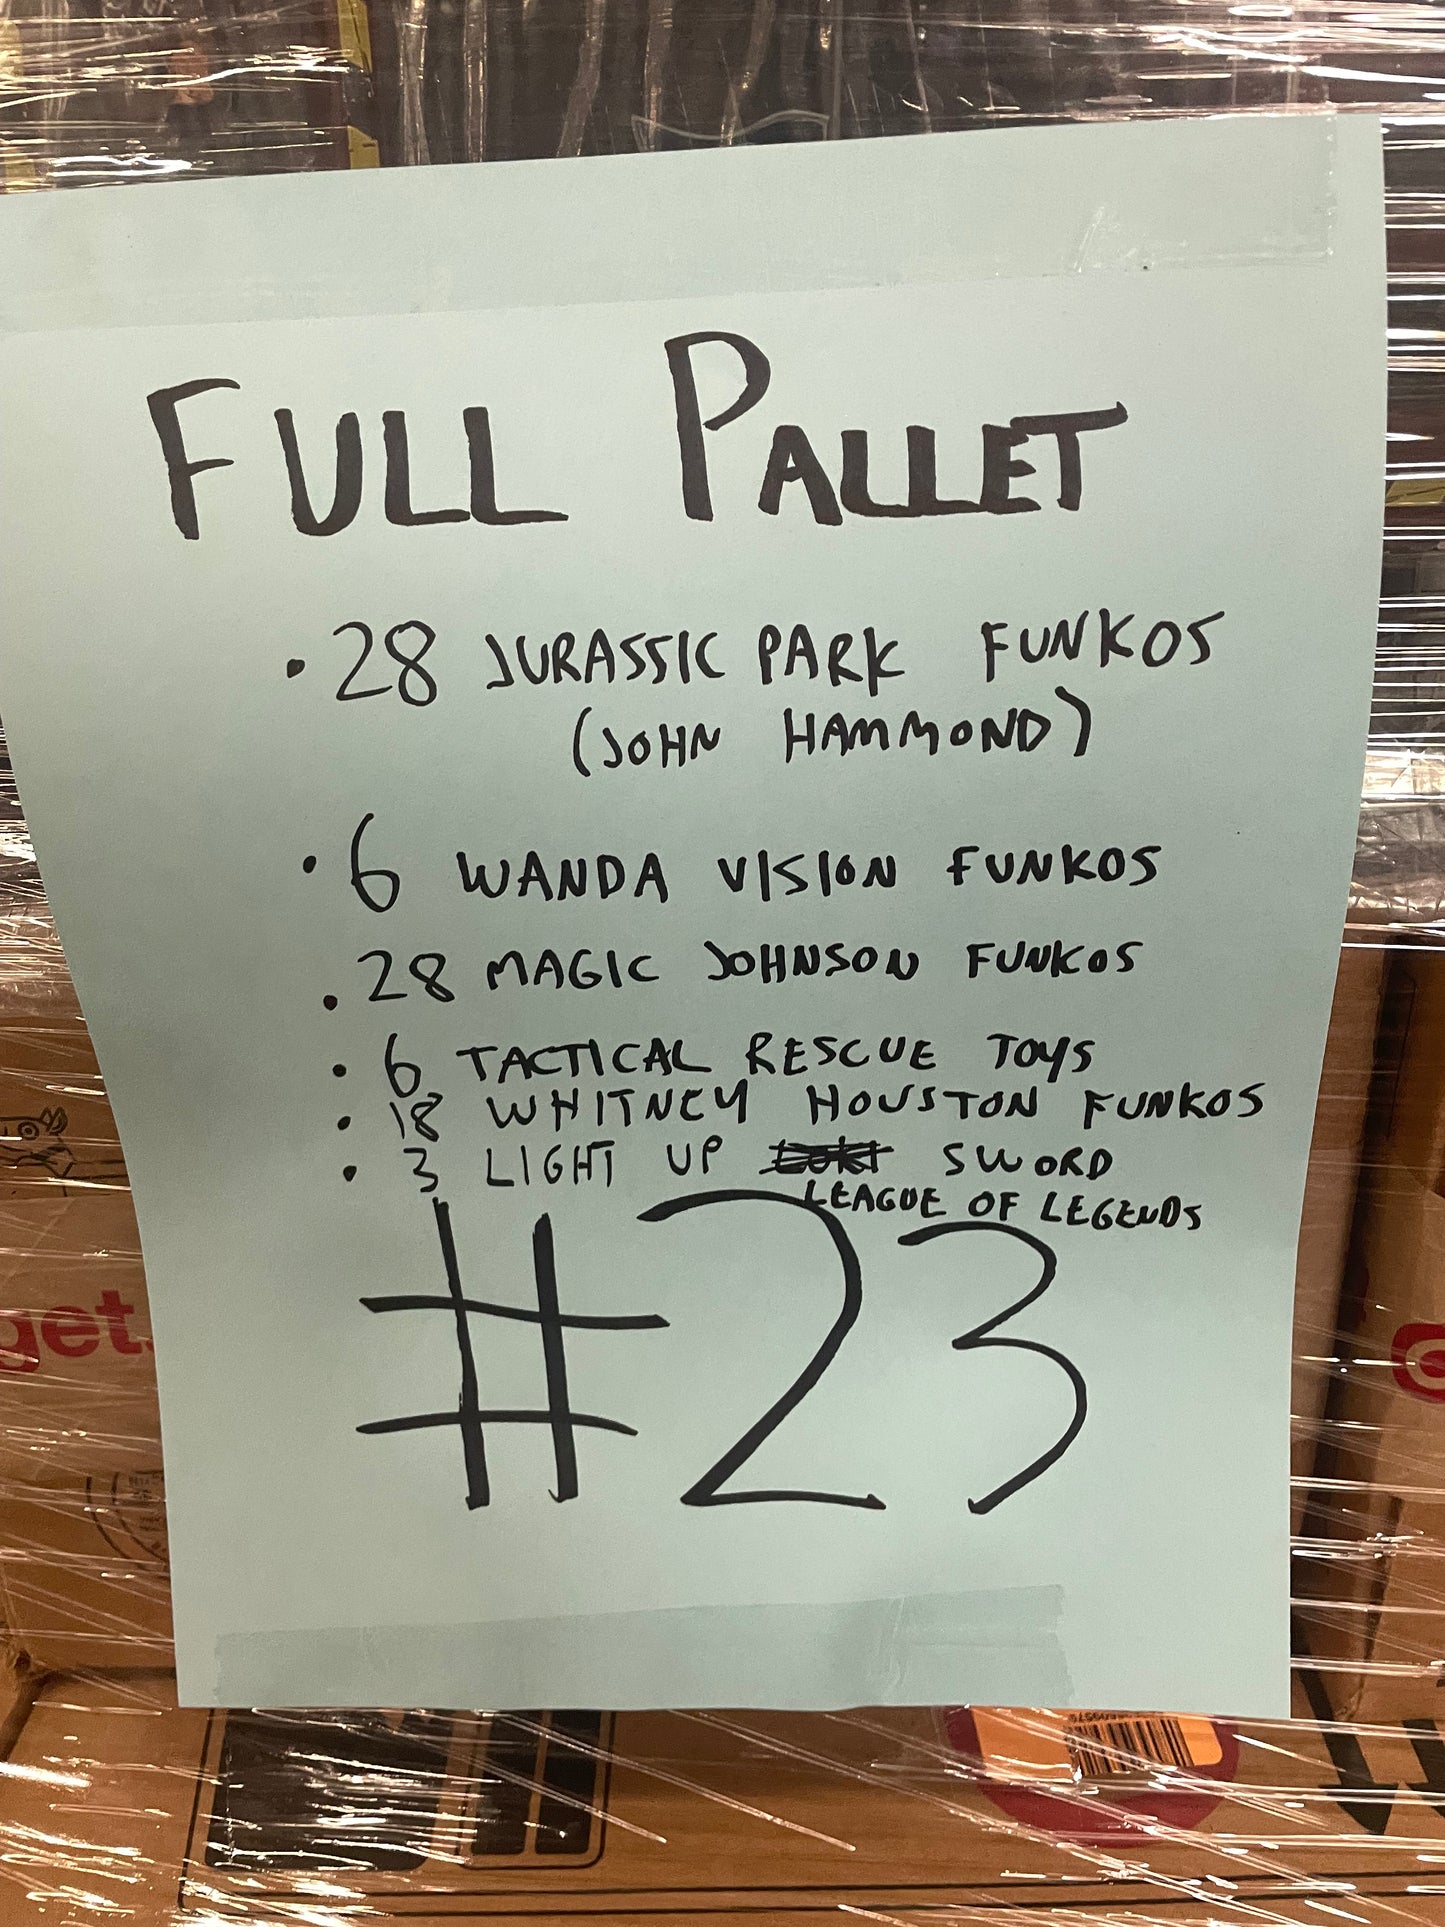 FULL PALLET
• 28 JURASSIC PARK FUNKOS
(JOHN HAMMOND)
• 6 WANDA VISION FUNKOS
• 28 MAGIC JOHNSON FUNKOS
• 6 TACTICAL RESCUE TOYS
• 18 WHITNEY HOUSTON FUNKOS
• 3 LIGHT UP SWORD
LEAGUE OF LEGENDS
#23
get.